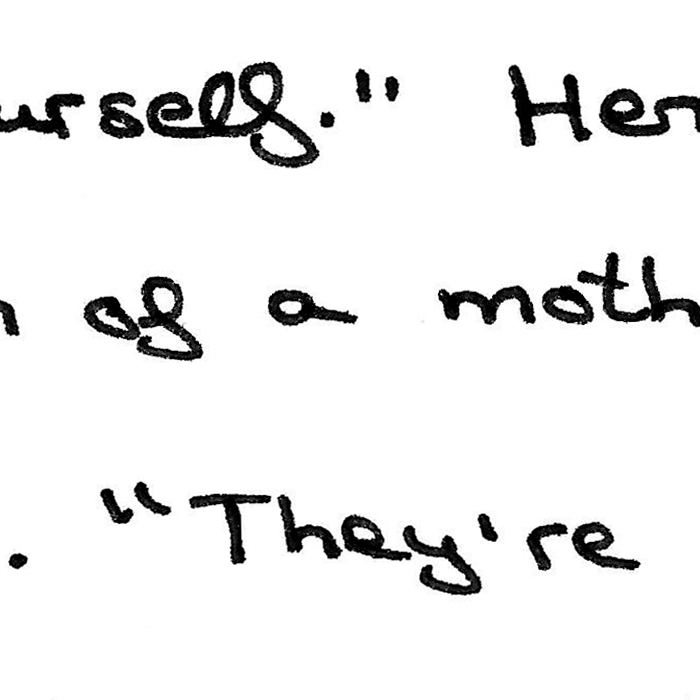 urself." Her
of a moth
. "They're